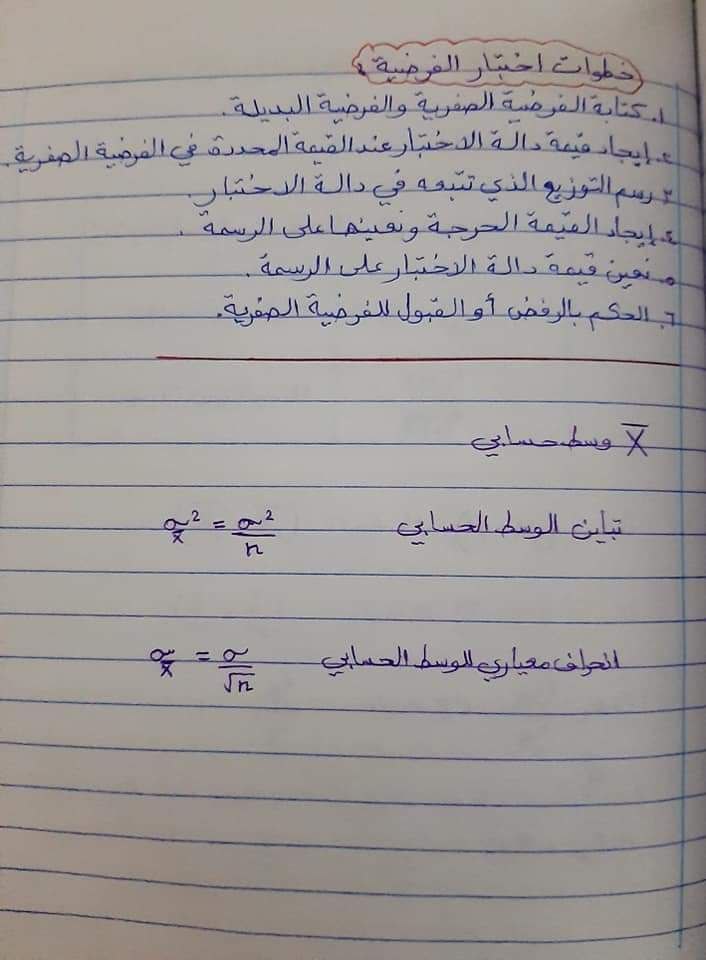 خطوات اختبار الفرضية :
١. كتابة الفرضية الصفرية والفرضية البديلة.
٢. إيجاد قيمة دالة الاختبار عند القيمة المحددة في الفرضية الصفرية.
٣. رسم التوزيع الذي تتبعه في دالة الاختبار.
٤. إيجاد القيمة الحرجة ونعينها على الرسمة.
٥. نعين قيمة دالة الاختبار على الرسمة.
٦. الحكم بالرفض أو القبول للفرضية الصفرية.
X̅ وسط حسابي
تباين الوسط الحسابي σ²x̅ = σ²/n
انحراف معياري للوسط الحسابي σx̅ = σ/√n